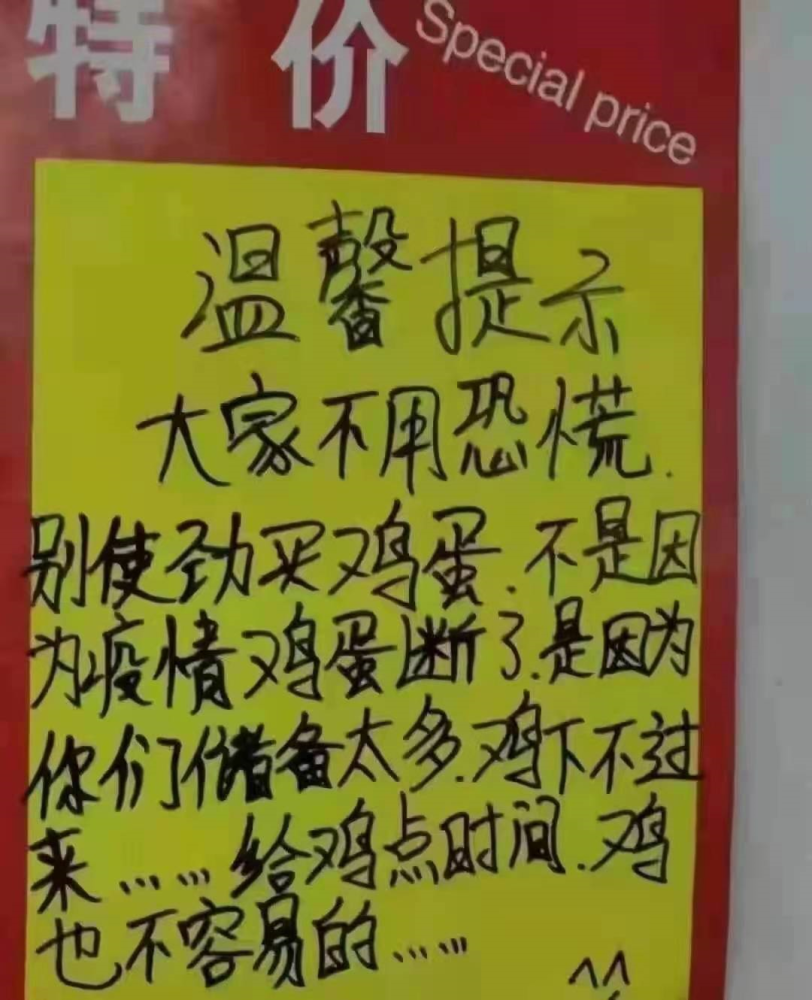 特价
Special price
温馨提示
大家不用恐慌.
别使劲买鸡蛋.不是因
为疫情鸡蛋断了.是因为
你们储备太多.鸡下不过
来……给鸡点时间.鸡
也不容易的……
^^